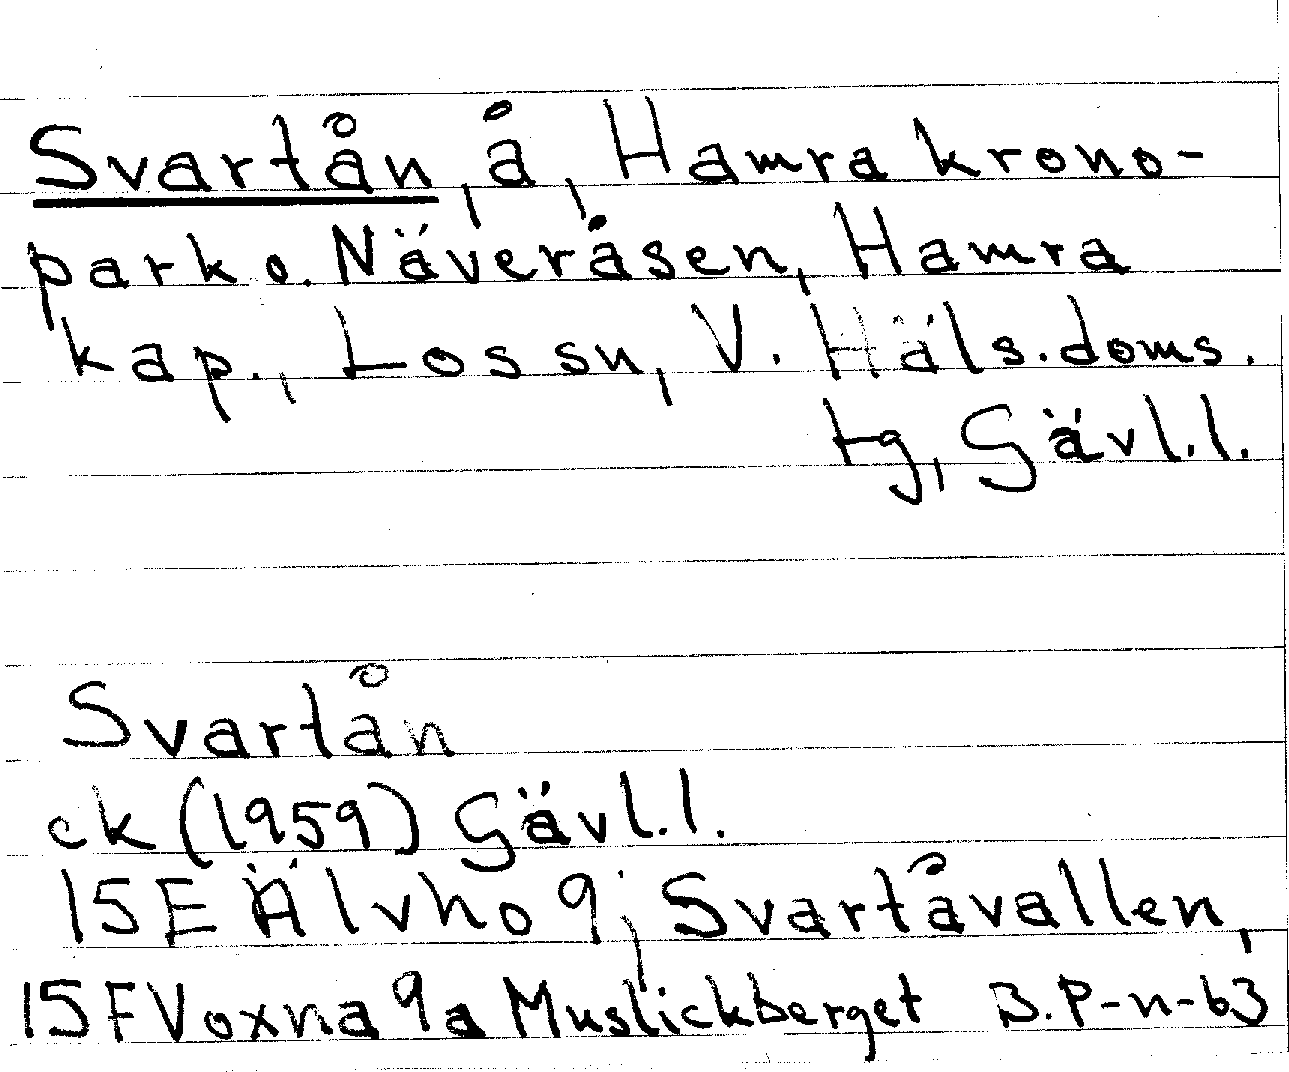 Svartån, å, Hamra krono-
park o. Näveråsen, Hamra
kap., Los sn, V. Häls. doms.
tg, Gävl. l.
Svartån
ek (1959) Gävl. l.
15 E Älvho 9j Svartåvallen,
15 F Voxna 9a Muslickberget B. P-n-63